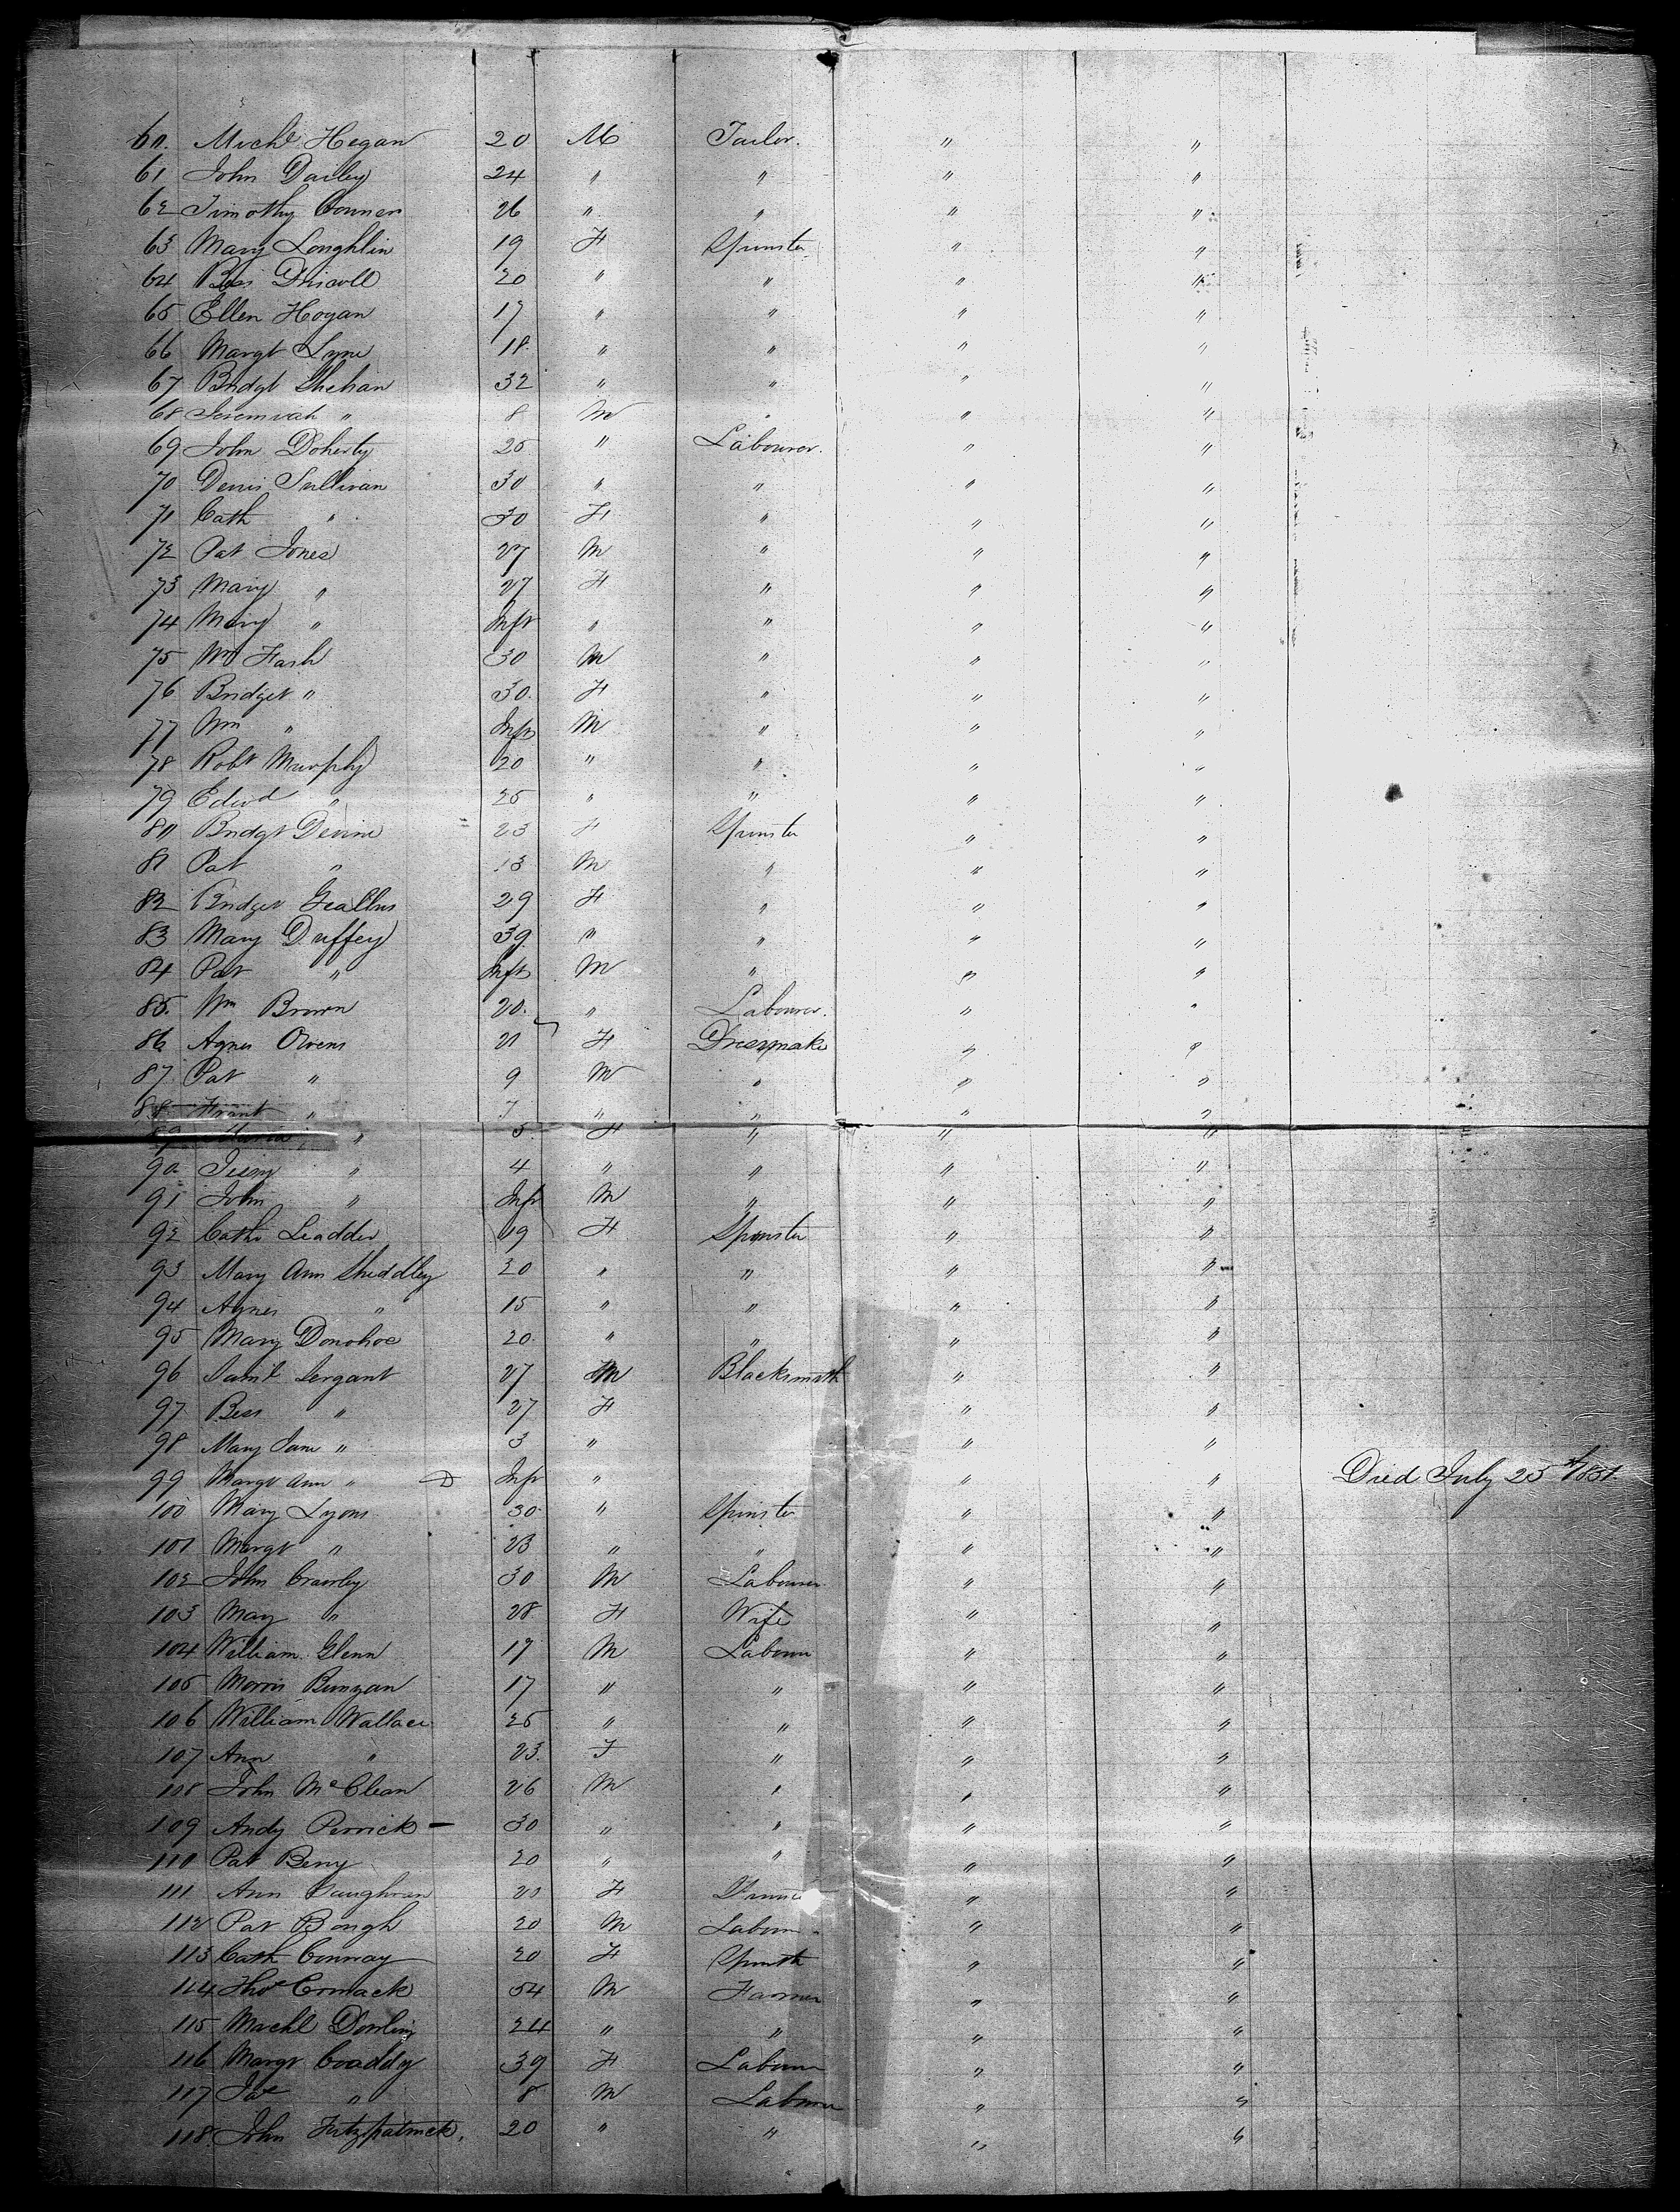 60. Michl Hogan 20 M Tailor. " "
61 John Dailey 24 " " " "
62 Timothy Conner 26 " " " "
63 Mary Loughlin 19 F Spinster " "
64 Bess Driscoll 20 " " " "
65 Ellen Hogan 17 " " " "
66 Margt Lyne 18 " " " "
67 Bridgt Shehan 32 " " " "
68 Jeremiah " 8 M " " "
69 John Doherty 25 " Labourer. " "
70 Denis Sullivan 30 " " " "
71 Cath " 30 F " " "
72 Pat Jones 27 M " " "
73 Mary " 27 F " " "
74 Mary " Inft " " " "
75 Wm Fash 30 M " " "
76 Bridget " 30. F " " "
77 Wm " Inft M " " "
78 Robt Murphy 20 " " " "
79 Edwd " 25 " " " "
80 Bridgt Devine 23 F Spinster " "
81 Pat " 13 M " " "
82 Bridget 29 F " " "
83 Mary Duffey 39 " " " "
84 Pat " Inft M " " "
85. Wm Brown 20. " Labourer. " "
86 Agnes Owens 21 F Dressmaker " "
87 Pat " 9 M " " "
88 Frank " 7 " " " "
89 Maria " 5 F " " "
90 " 4 " " " "
91 John " Inft M " " "
92 Cathe Leadder 19 F Spinster " "
93 Mary Ann Shiddley 20 " " " "
94 Agnes " 15 " " " "
95 Mary Donohoe 20. " " " "
96 Saml Sergant 27 M Blacksmith " "
97 Bess " 27 F " "
98 Mary Jane " 3 " " "
99 Margt Ann " D Inft " " " Died July 25th 1851.
100 Mary Lyons 30 " Spinster " "
101 Margt " 23 " " " "
102 John Crawley 30 M Labourer " "
103 May " 28 F Wife " "
104 William Glenn 17 M Labour " "
105 Morris Bunyan 17 " " " "
106 William Wallace 25 " " " "
107 Ann " 23. F " " "
108 John McClean 26 M " " "
109 Andy Perrick - 30 " " " "
110 Pat Berry 20 " " " "
111 Ann Gaughran 20 F " "
112 Pat Bough 20 M Labour " "
113 Cath Conway 20 F Spinster " "
114 Thos Cormack 54 M Farmer " "
115 Michl Dowling 24 " " " "
116 Margt Coaddy 39 F Labour " "
117 Jas " 8 M Labour " "
118. John Fitzpatrick. 20 " " " "